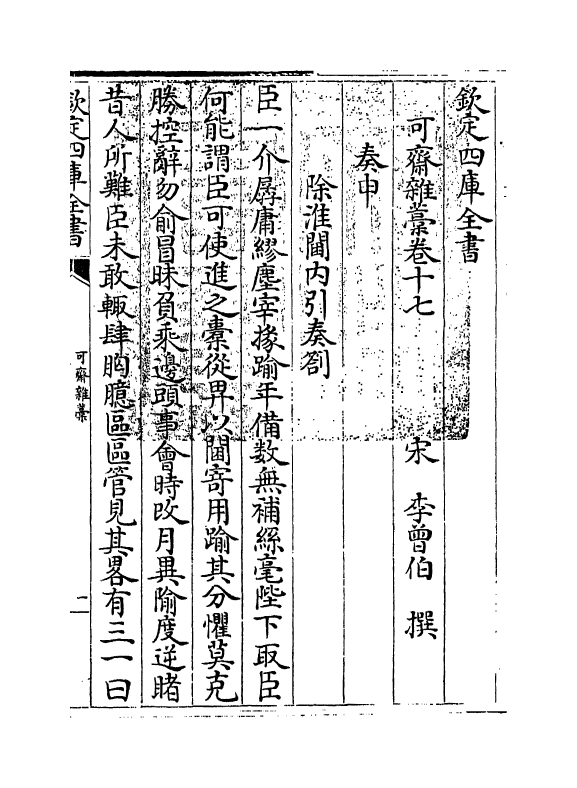 欽定四庫全書
可齋雜藁卷十七　宋　李曾伯　撰
奏申
除淮閫内引奏劄
臣一介孱庸繆塵宰掾踰年備數無補絲毫陛下取臣
何能謂臣可使進之橐從畀以閫寄用踰其分懼莫克
勝控辭勿俞冒昧負乘邊頭事會時改月異隃度逆睹
昔人所難臣未敢輙肆胸臆區區管見其畧有三一曰
欽定四庫全書
可齋雜藁